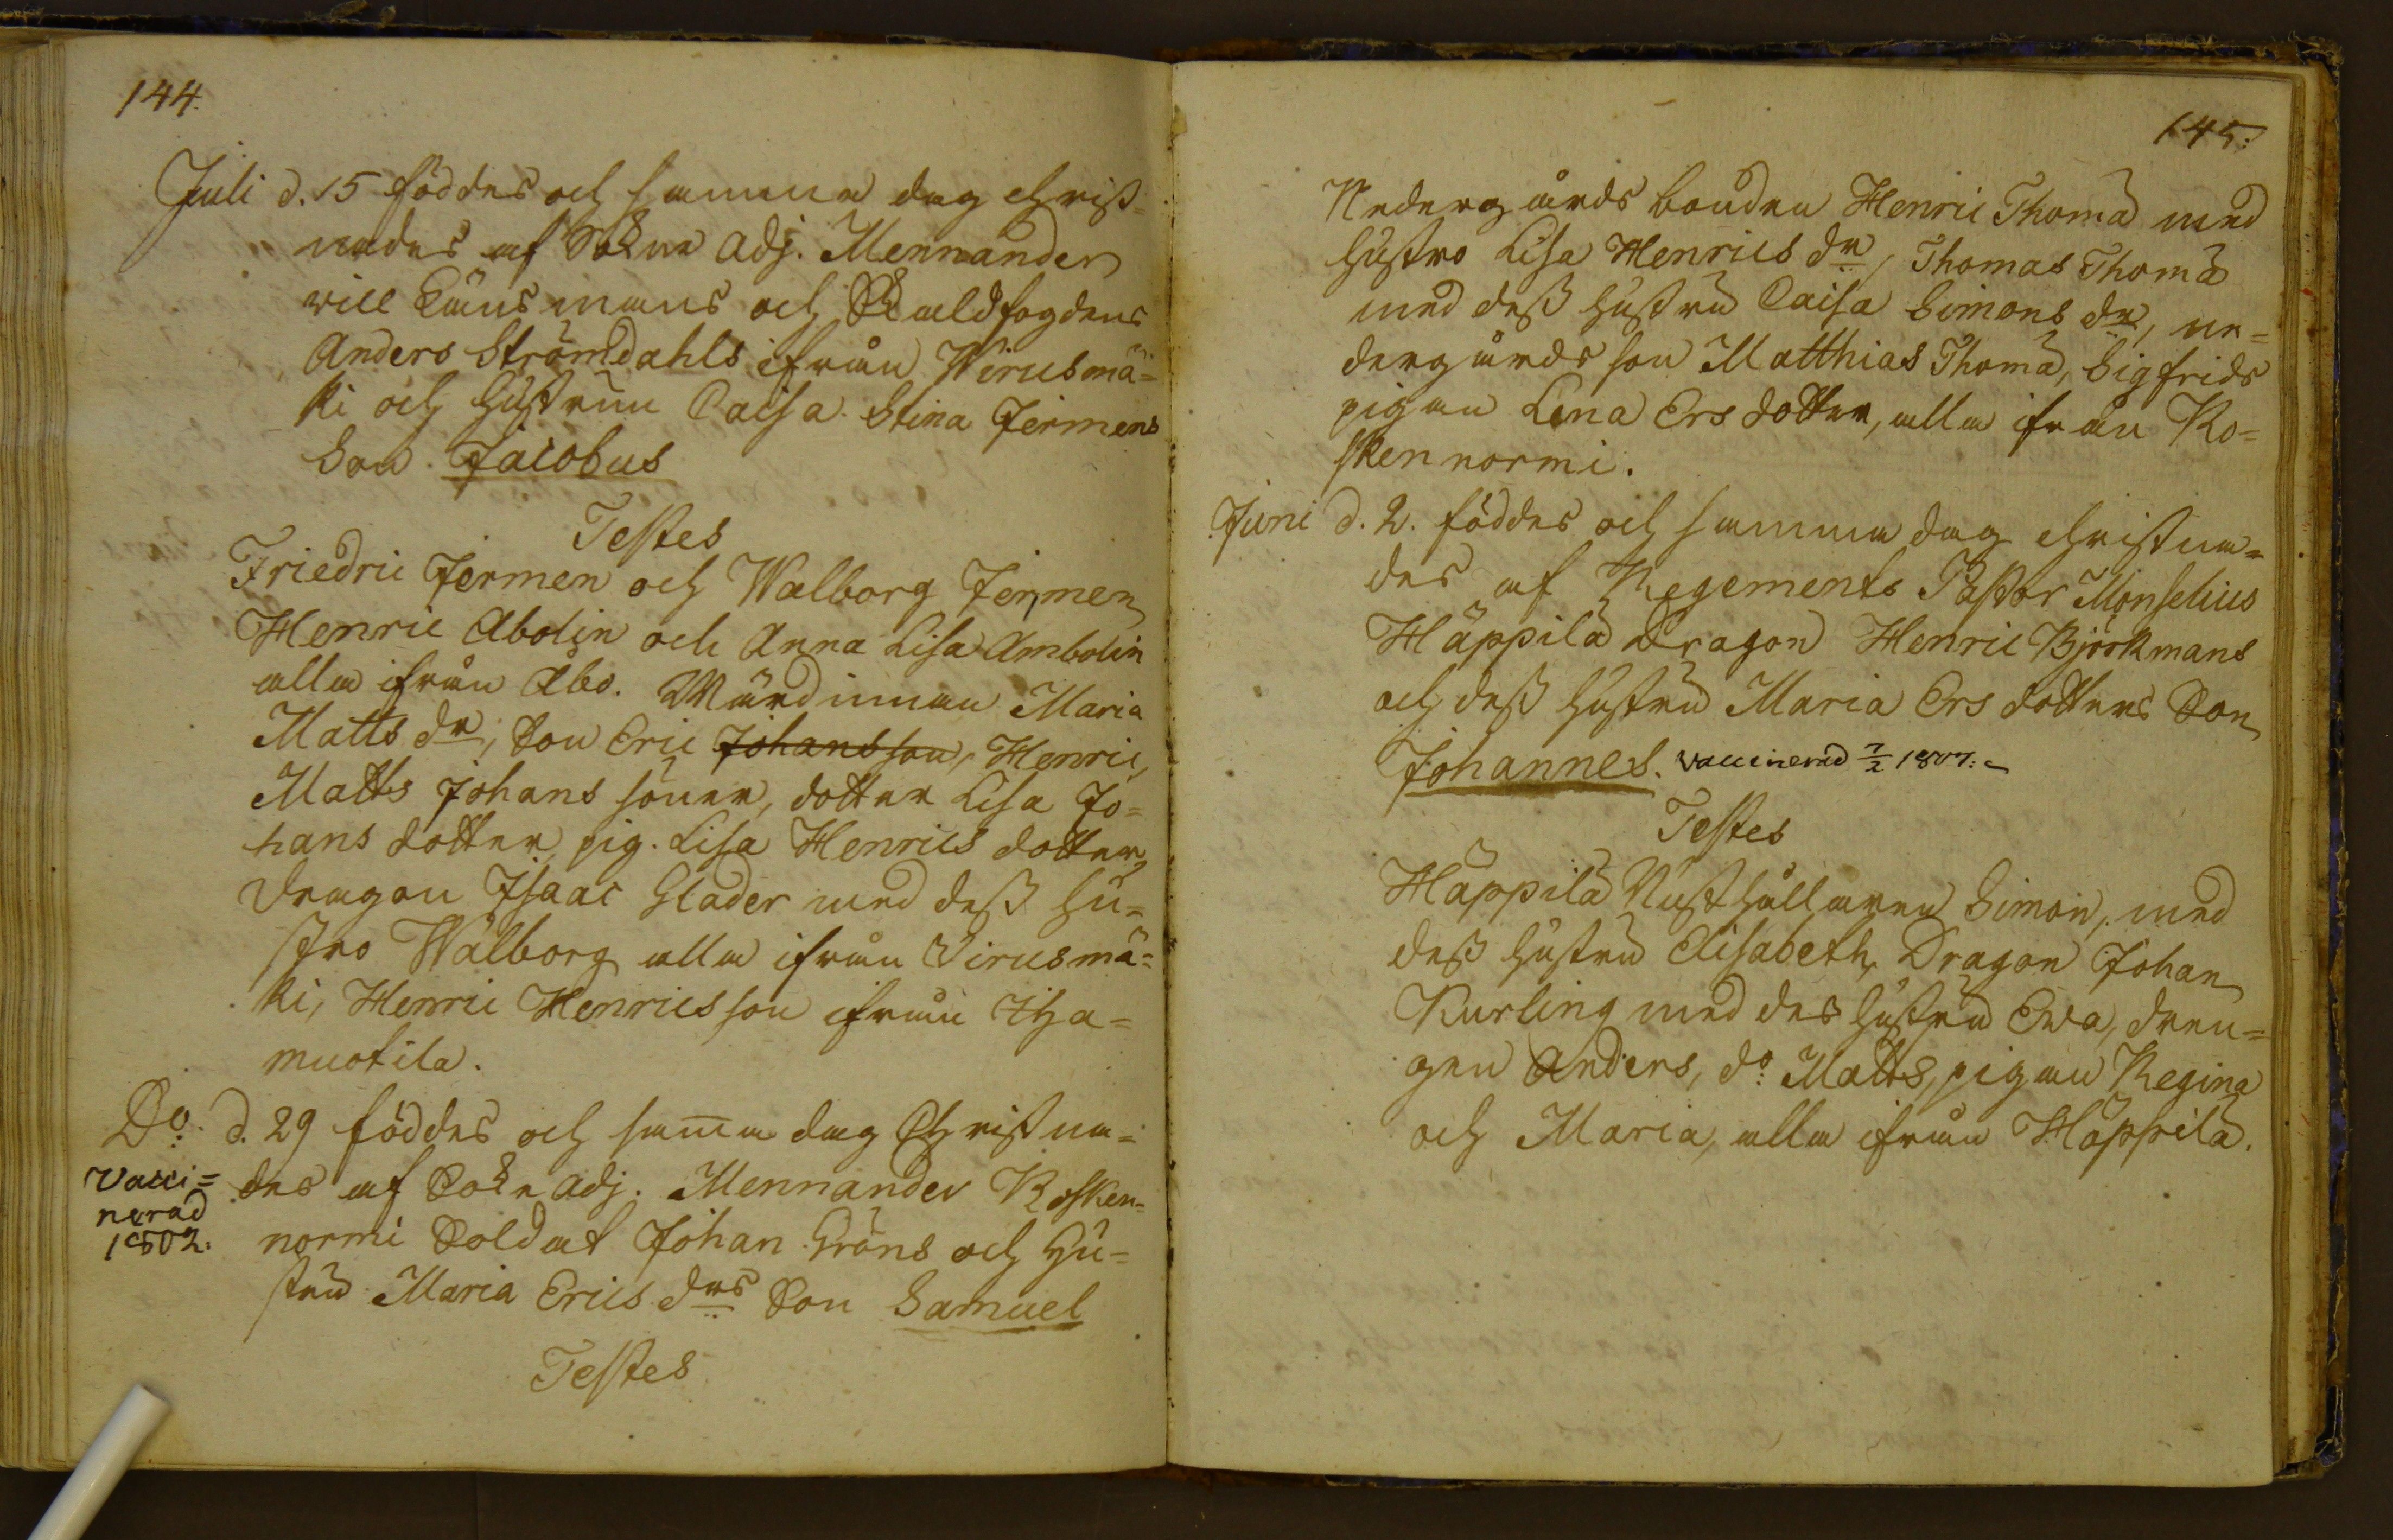 144.
Juli d. 15 föddes och samma dag christ=
nades af Sokne Adj. Mennander
vice Länsmans och Skaldfogdens
Anders Strömdahls ifrån Wirusmä=
ki och hustrun Caisa Stina Jermens
Son Jacobus
Testes
Friedric Jermen och Walborg Jermen
Henric Abolin och Anna Lisa Ambolin
alla ifrån Åbo. Wärdinnan Maria
Matts dr, Son Eric Johansson, Henric,
Matts Johans söner, dotter Lisa Jo=
hans dotter, pig. Lisa Henrics dotter,
Dragon Isaac Glader med dess hu=
stro Walborg alla ifrån Virusmä=
ki, Henric Henricsson ifrån Iha=
muotila.
Do. d. 29 föddes och samma dag Christna=
des af Sokne Adj. Mennander Kosken=
normi Soldat Johan Gröns och Hu=
stru Maria Erics drs Son Samuel
Vacci=
nerad
1802.
Testes
145.
Nedergårds bonden Henric Thomä med
hustro Lisa Henrics dr, Thomas Thomä
med dess hustru Caisa Simons dr, ne=
dergårds son Matthias Thomä, Sigfrids
pigan Lena Ers dotter, alla ifrån Ko=
skennormi.
Juni d. 2. föddes och samma dag christna=
des af Regements Pastor Monselius
Häppilä Dragon Henric Björkmans
och dess hustru Maria Ers dotters Son
Johannes. Vaccinerad 7/2 1807.
Testes
Häppilä Rusthållaren Simon, med
dess hustru Elisabeth, Dragon Johan
Kurling med des hustru Ewa, dren=
gen Anders, do Matts, pigan Regina
och Maria, alla ifrån Häppilä.